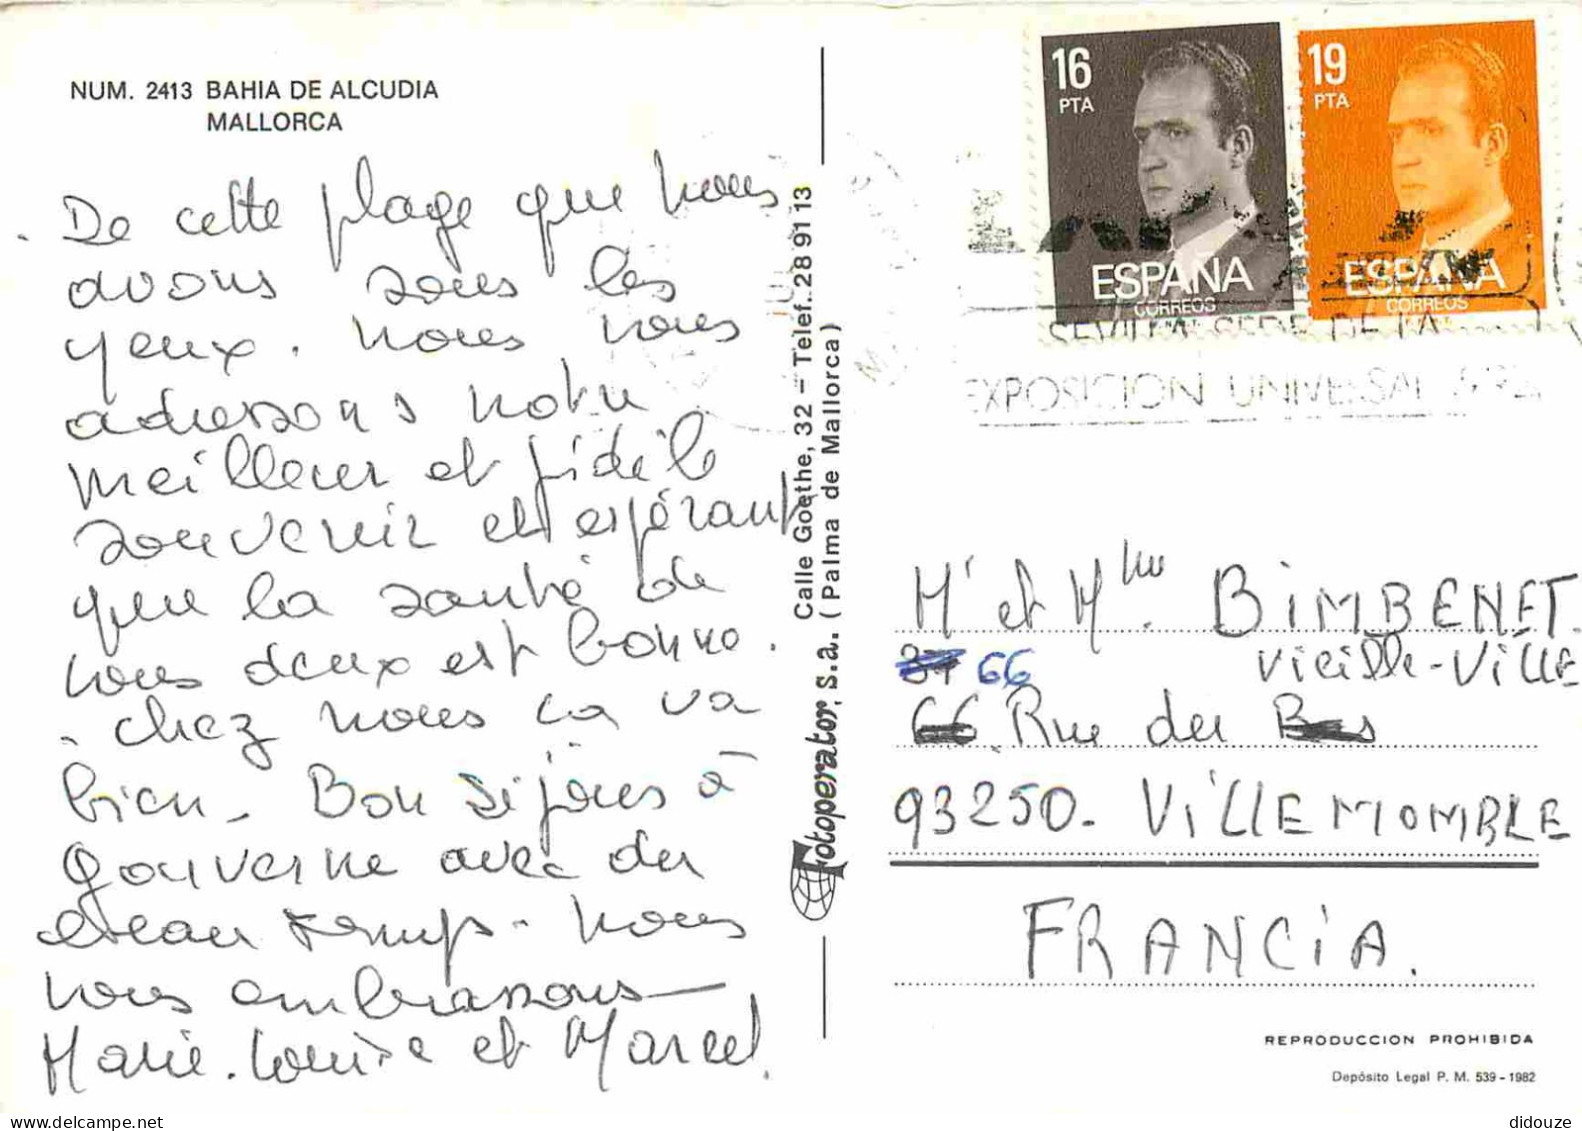 NUM. 2413 BAHIA DE ALCUDIA
MALLORCA
De cette plage que nous
avons sous les
yeux. nous vous
adressons notre
meilleur et fidèle
souvenir et espérant
que la santé de
vous deux est bonne.
- chez nous ca va
bien - Bon séjour à
gouverne avec du
beau temps - nous
vous embrassons -
Marie-Louise et Marcel.
Fotoperator, S.a. Calle Goethe, 32 - Telef. 28 91 13
(Palma de Mallorca)
16
PTA
ESPAÑA
CORREOS
19
PTA
ESPAÑA
CORREOS
SEVILLA SEDE DE LA
EXPOSICION UNIVERSAL 1992
Mr et Mme BIMBENET.
66 Vieille-Ville
Rue du
93250 - VILLEMOMBLE
FRANCIA.
REPRODUCCION PROHIBIDA
Depósito Legal P. M. 539 - 1982
didouze